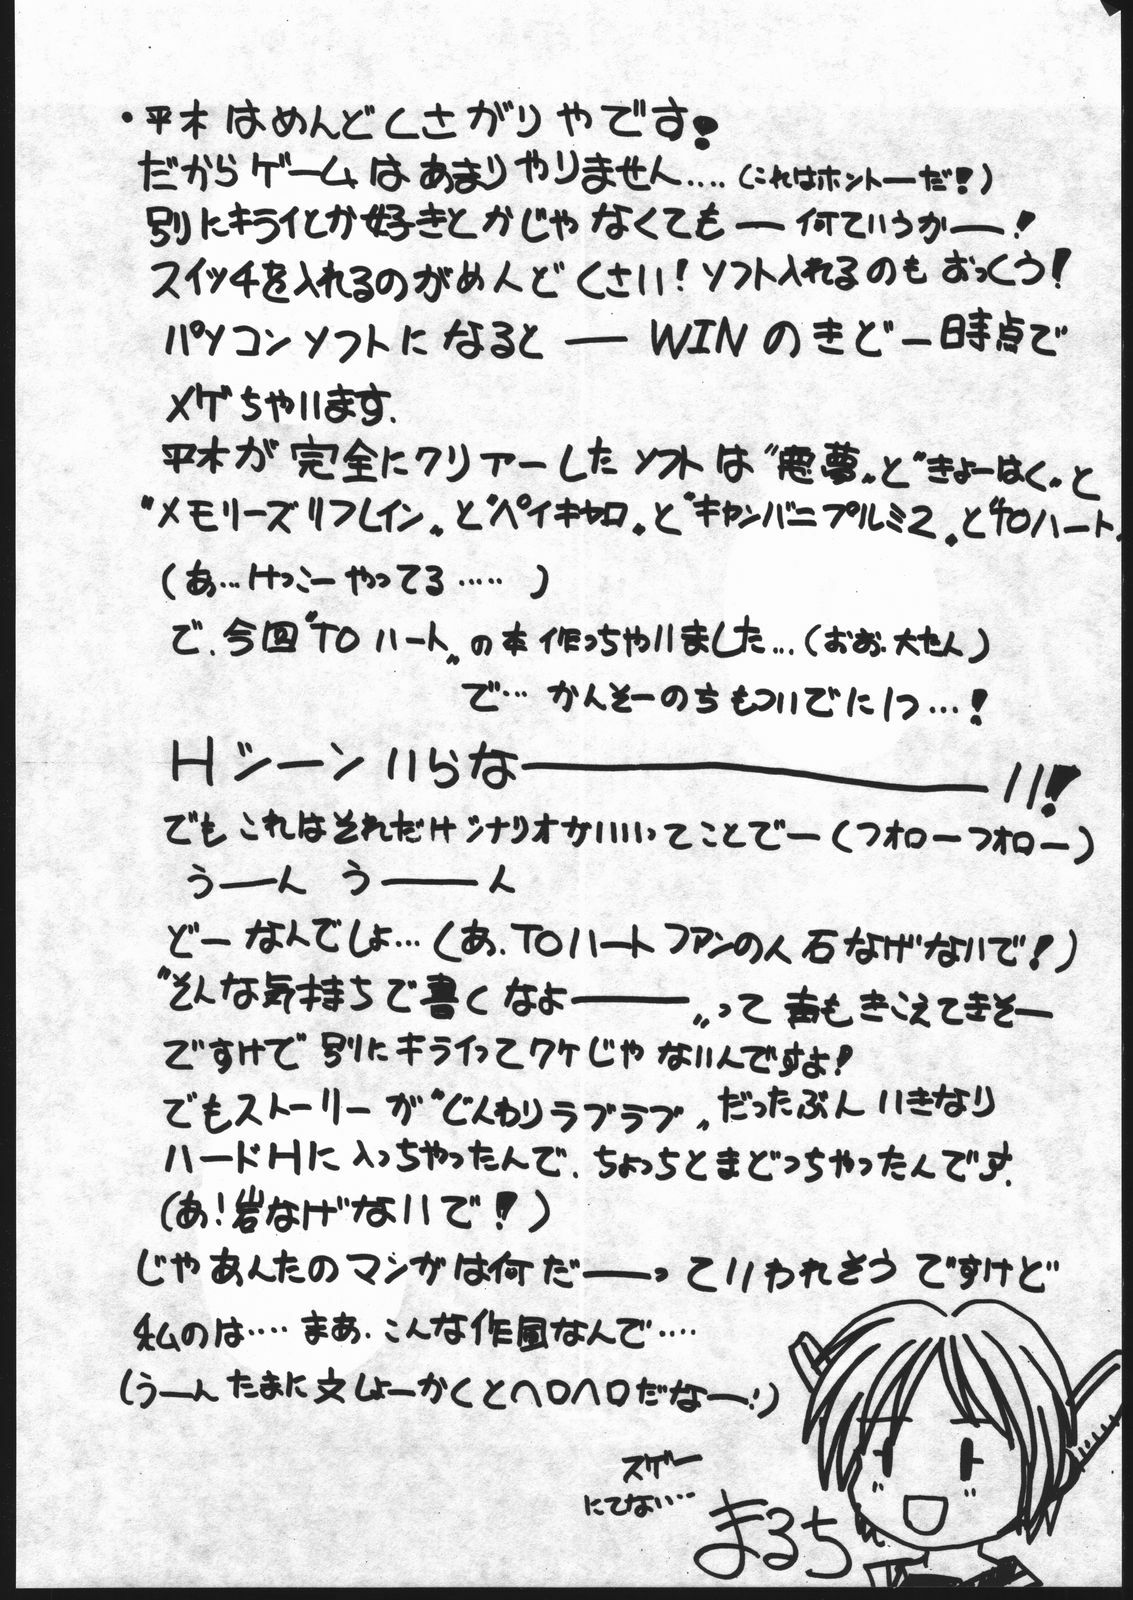 ・平木はめんどくさがりやです!
だからゲームはあまりやりません‥‥(これはホントーだ!)
別にキライとか好きとかじゃなくても ー 何ていうかー!
スイッチを入れるのがめんどくさい!ソフト入れるのもおっくう!
パソコンソフトになるとー WINのきどー時点で
メゲちゃいます.
平木が完全にクリアーしたソフトは〝悪夢〟と〝きょーはく〟と
〝メモリーズリフレイン〟と〝ペイキャロ〟と〝キャンバニプルミ2〟と〝TOハート〟
(あ…けっこーやってる……)
で.今回〝TOハート〟の本作っちゃいました…(おお.大せん)
で… かんそーのちもついでに1つ…!
Hシーンいらなーーーーい!
でもこれはそれだけシナリオがいいってことでー(フォローフォロー)
うーん うーーん
どーなんでしょ…(あ.TOハートファンの人石なげないで!)
〝そんな気持ちで書くなよーーー〟って声もきこえてきそー
ですけで別にキライってワケじゃないんですよ!
でもストーリーが〝じんわりラブラブ〟だったぶんいきなり
ハードHに入っちゃったんで.ちょっとまどっちゃったんです.
(あ!岩なげないで!)
じゃあんたのマンガは何だーーっていわれそうですけど
私のは‥‥まあ.こんな作風なんで‥‥
(うーんたまに文しょーかくとヘロヘロだなー!)
スゲー
にてない…
まるち